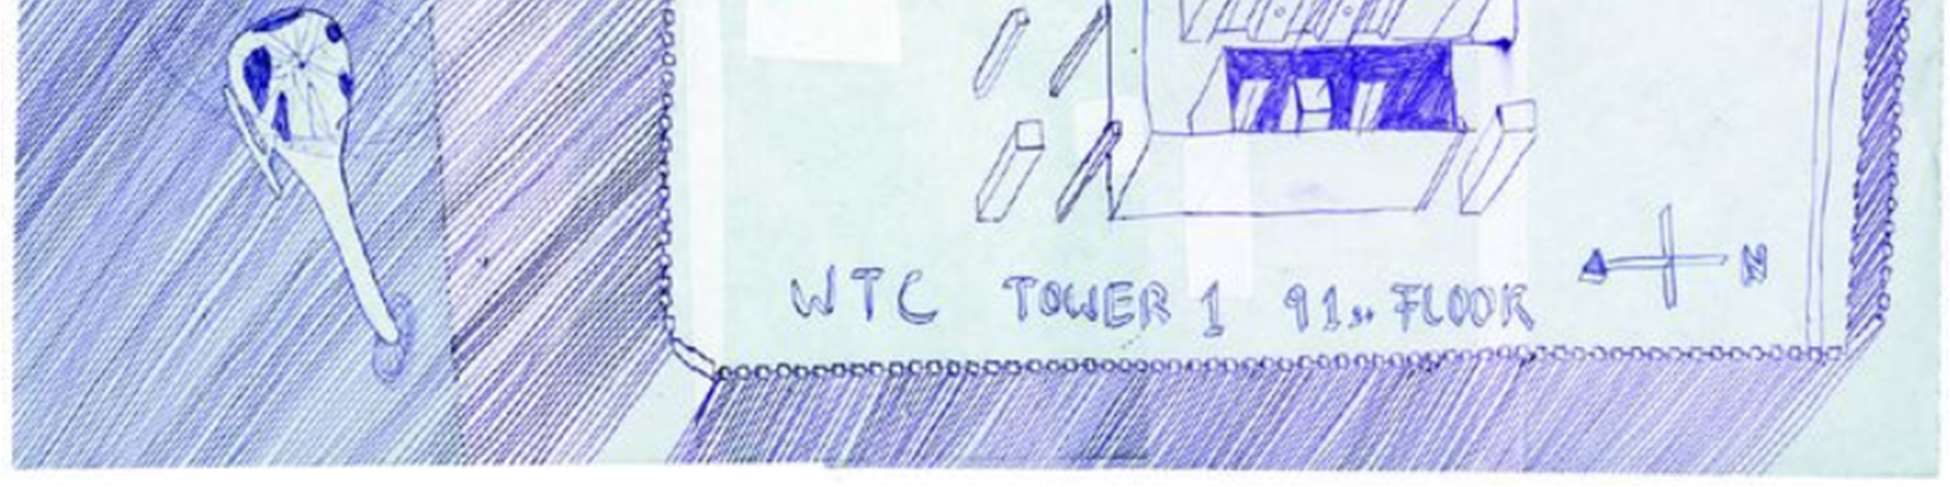 WTC TOWER 1 91st FLOOR
N